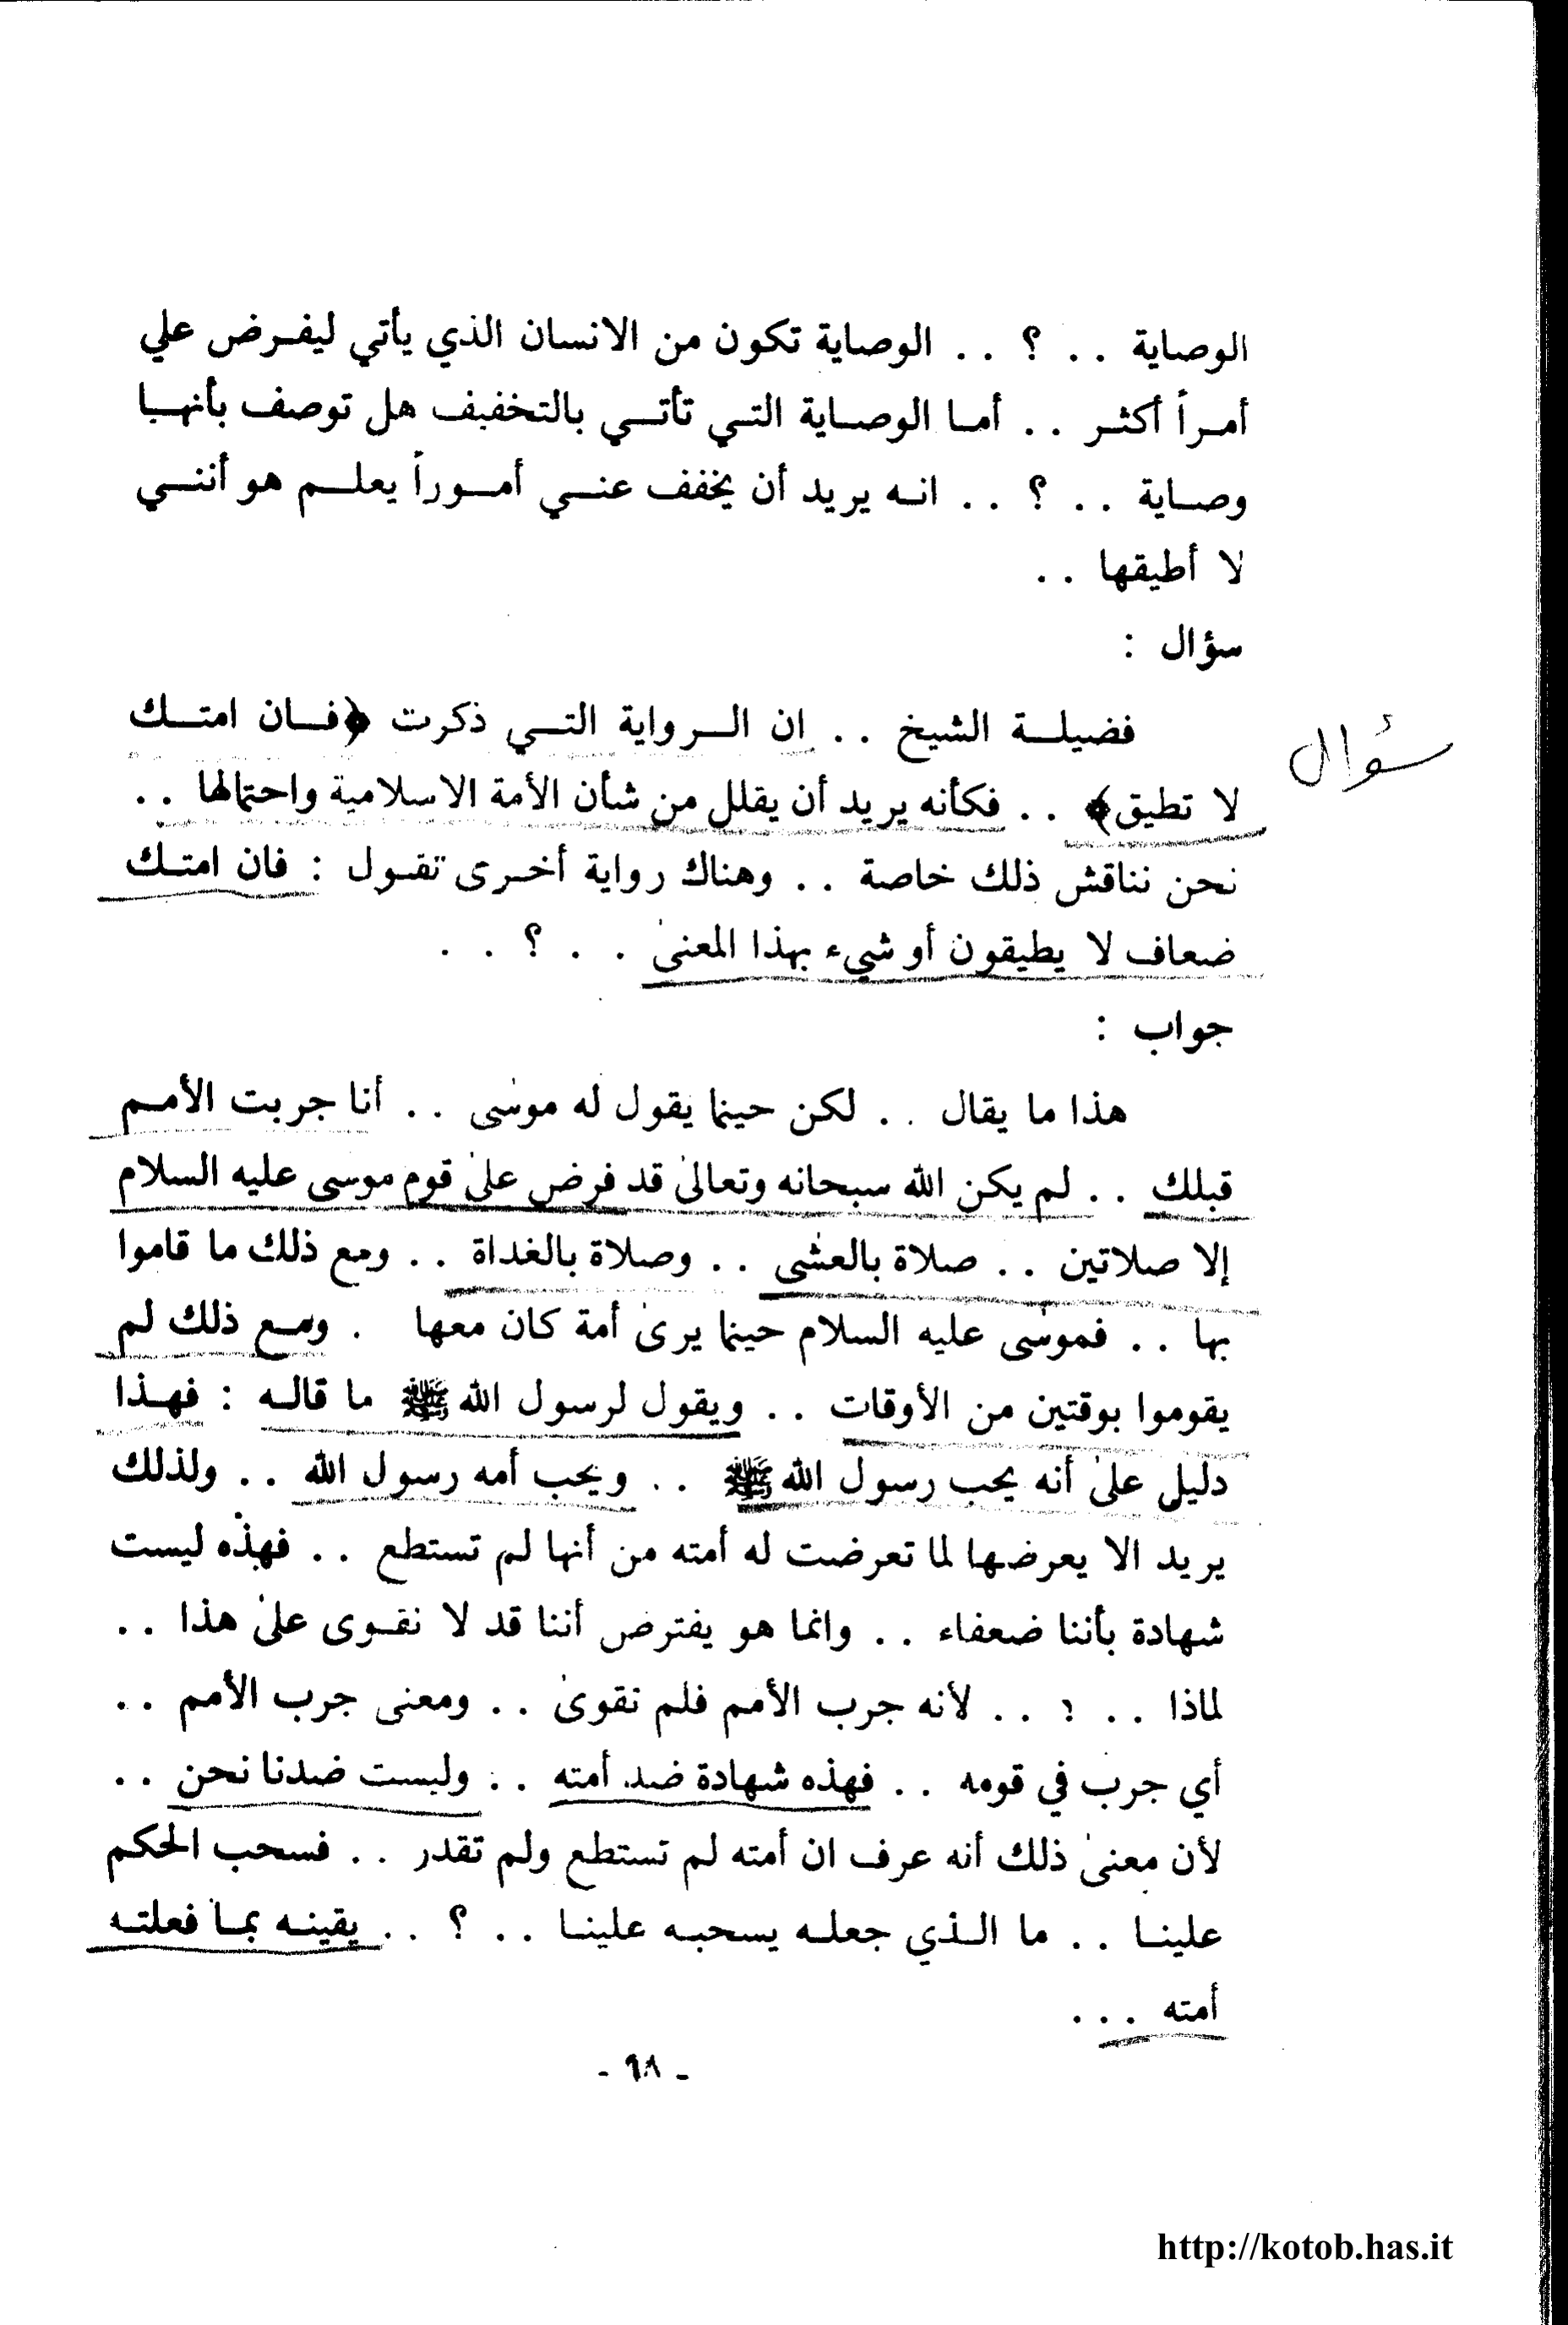 الوصاية . . ؟ . . الوصاية تكون من الانسان الذي يأتي ليفـرض علي
أمـراً أكثـر . . أمـا الوصـاية التـي تأتـي بالتخفيف هل توصف بأنهـا
وصـاية . . ؟ . . انـه يريد أن يخفف عنـي أمـوراً يعلـم هو أننـي
لا أطيقها . .
سؤال :
فضيلـة الشيخ . . ان الـرواية التـي ذكرت ﴿فـان امتـك
سؤال
لا تطيق﴾ . . فكأنه يريد أن يقلل من شأن الأمة الاسلامية واحتمالها . .
نحن نناقش ذلك خاصة . . وهناك رواية أخـرى تقـول : فان امتـك
ضعاف لا يطيقون أو شيء بهذا المعنى . . ؟ . .
جواب :
هذا ما يقال . . لكن حينما يقول له موسى . . أنا جربت الأمـم
قبلك . . لم يكن الله سبحانه وتعالى قد فرض على قوم موسى عليه السلام
إلا صلاتين . . صلاة بالعشى . . وصلاة بالغداة . . ومع ذلك ما قاموا
بها . . فموسى عليه السلام حينما يرى أمة كان معها . ومـع ذلك لم
يقوموا بوقتين من الأوقات . . ويقول لرسول الله ﷺ ما قالـه : فهـذا
دليل على أنه يحب رسول الله ﷺ . . ويحب أمه رسول الله . . ولذلك
يريد الا يعرضها لما تعرضت له أمته من أنها لم تستطع . . فهذه ليست
شهادة بأننا ضعفاء . . وانما هو يفترض أننا قد لا نقـوى على هذا . .
لماذا . . ؟ . . لأنه جرب الأمم فلم تقوى . . ومعنى جرب الأمم . .
أي جرب في قومه . . فهذه شهادة ضد أمته . . وليست ضدنا نحن . .
لأن معنى ذلك أنه عرف ان أمته لم تستطع ولم تقدر . . فسحب الحكم
علينـا . . ما الـذي جعلـه يسحبـه علينـا . . ؟ . . يقينـه بمـا فعلتـه
أمته . . .
- ٦٨ -
http://kotob.has.it